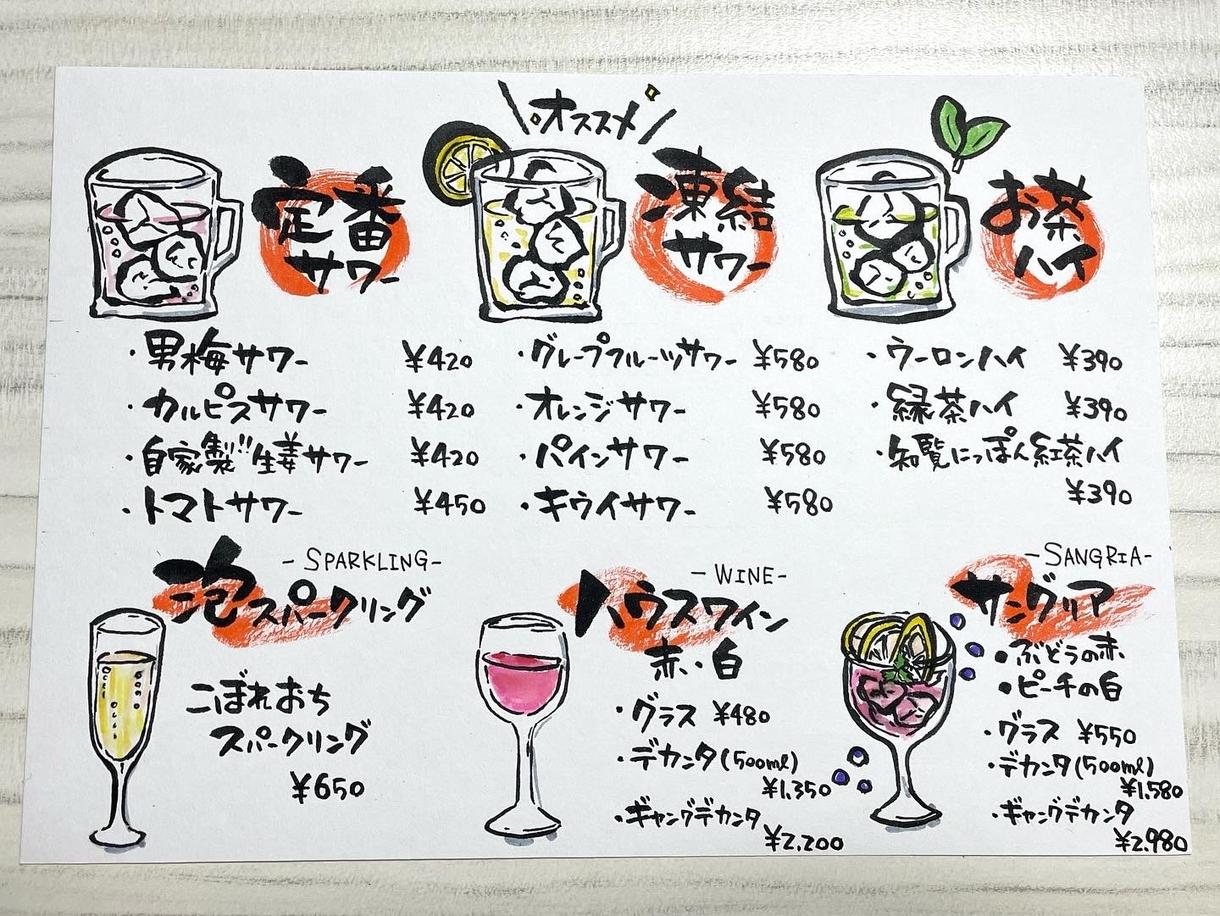 オススメ
定番
サワー
・男梅サワー ¥420
・カルピスサワー ¥420
・自家製!!生姜サワー ¥420
・トマトサワー ¥450
凍結
サワー
・グレープフルーツサワー ¥580
・オレンジサワー ¥580
・パインサワー ¥580
・キウイサワー ¥580
お茶
ハイ
・ウーロンハイ ¥390
・緑茶ハイ ¥390
・知覧にっぽん紅茶ハイ
¥390
-SPARKLING-
泡スパークリング
こぼれおち
スパークリング
¥650
-WINE-
ハウスワイン
赤・白
・グラス ¥480
・デカンタ(500ml)
¥1,350
・ギャングデカンタ
¥2,200
-SANGRIA-
サングリア
●ぶどうの赤
●ピーチの白
・グラス ¥550
・デカンタ(500ml)
¥1,580
・ギャングデカンタ
¥2,980